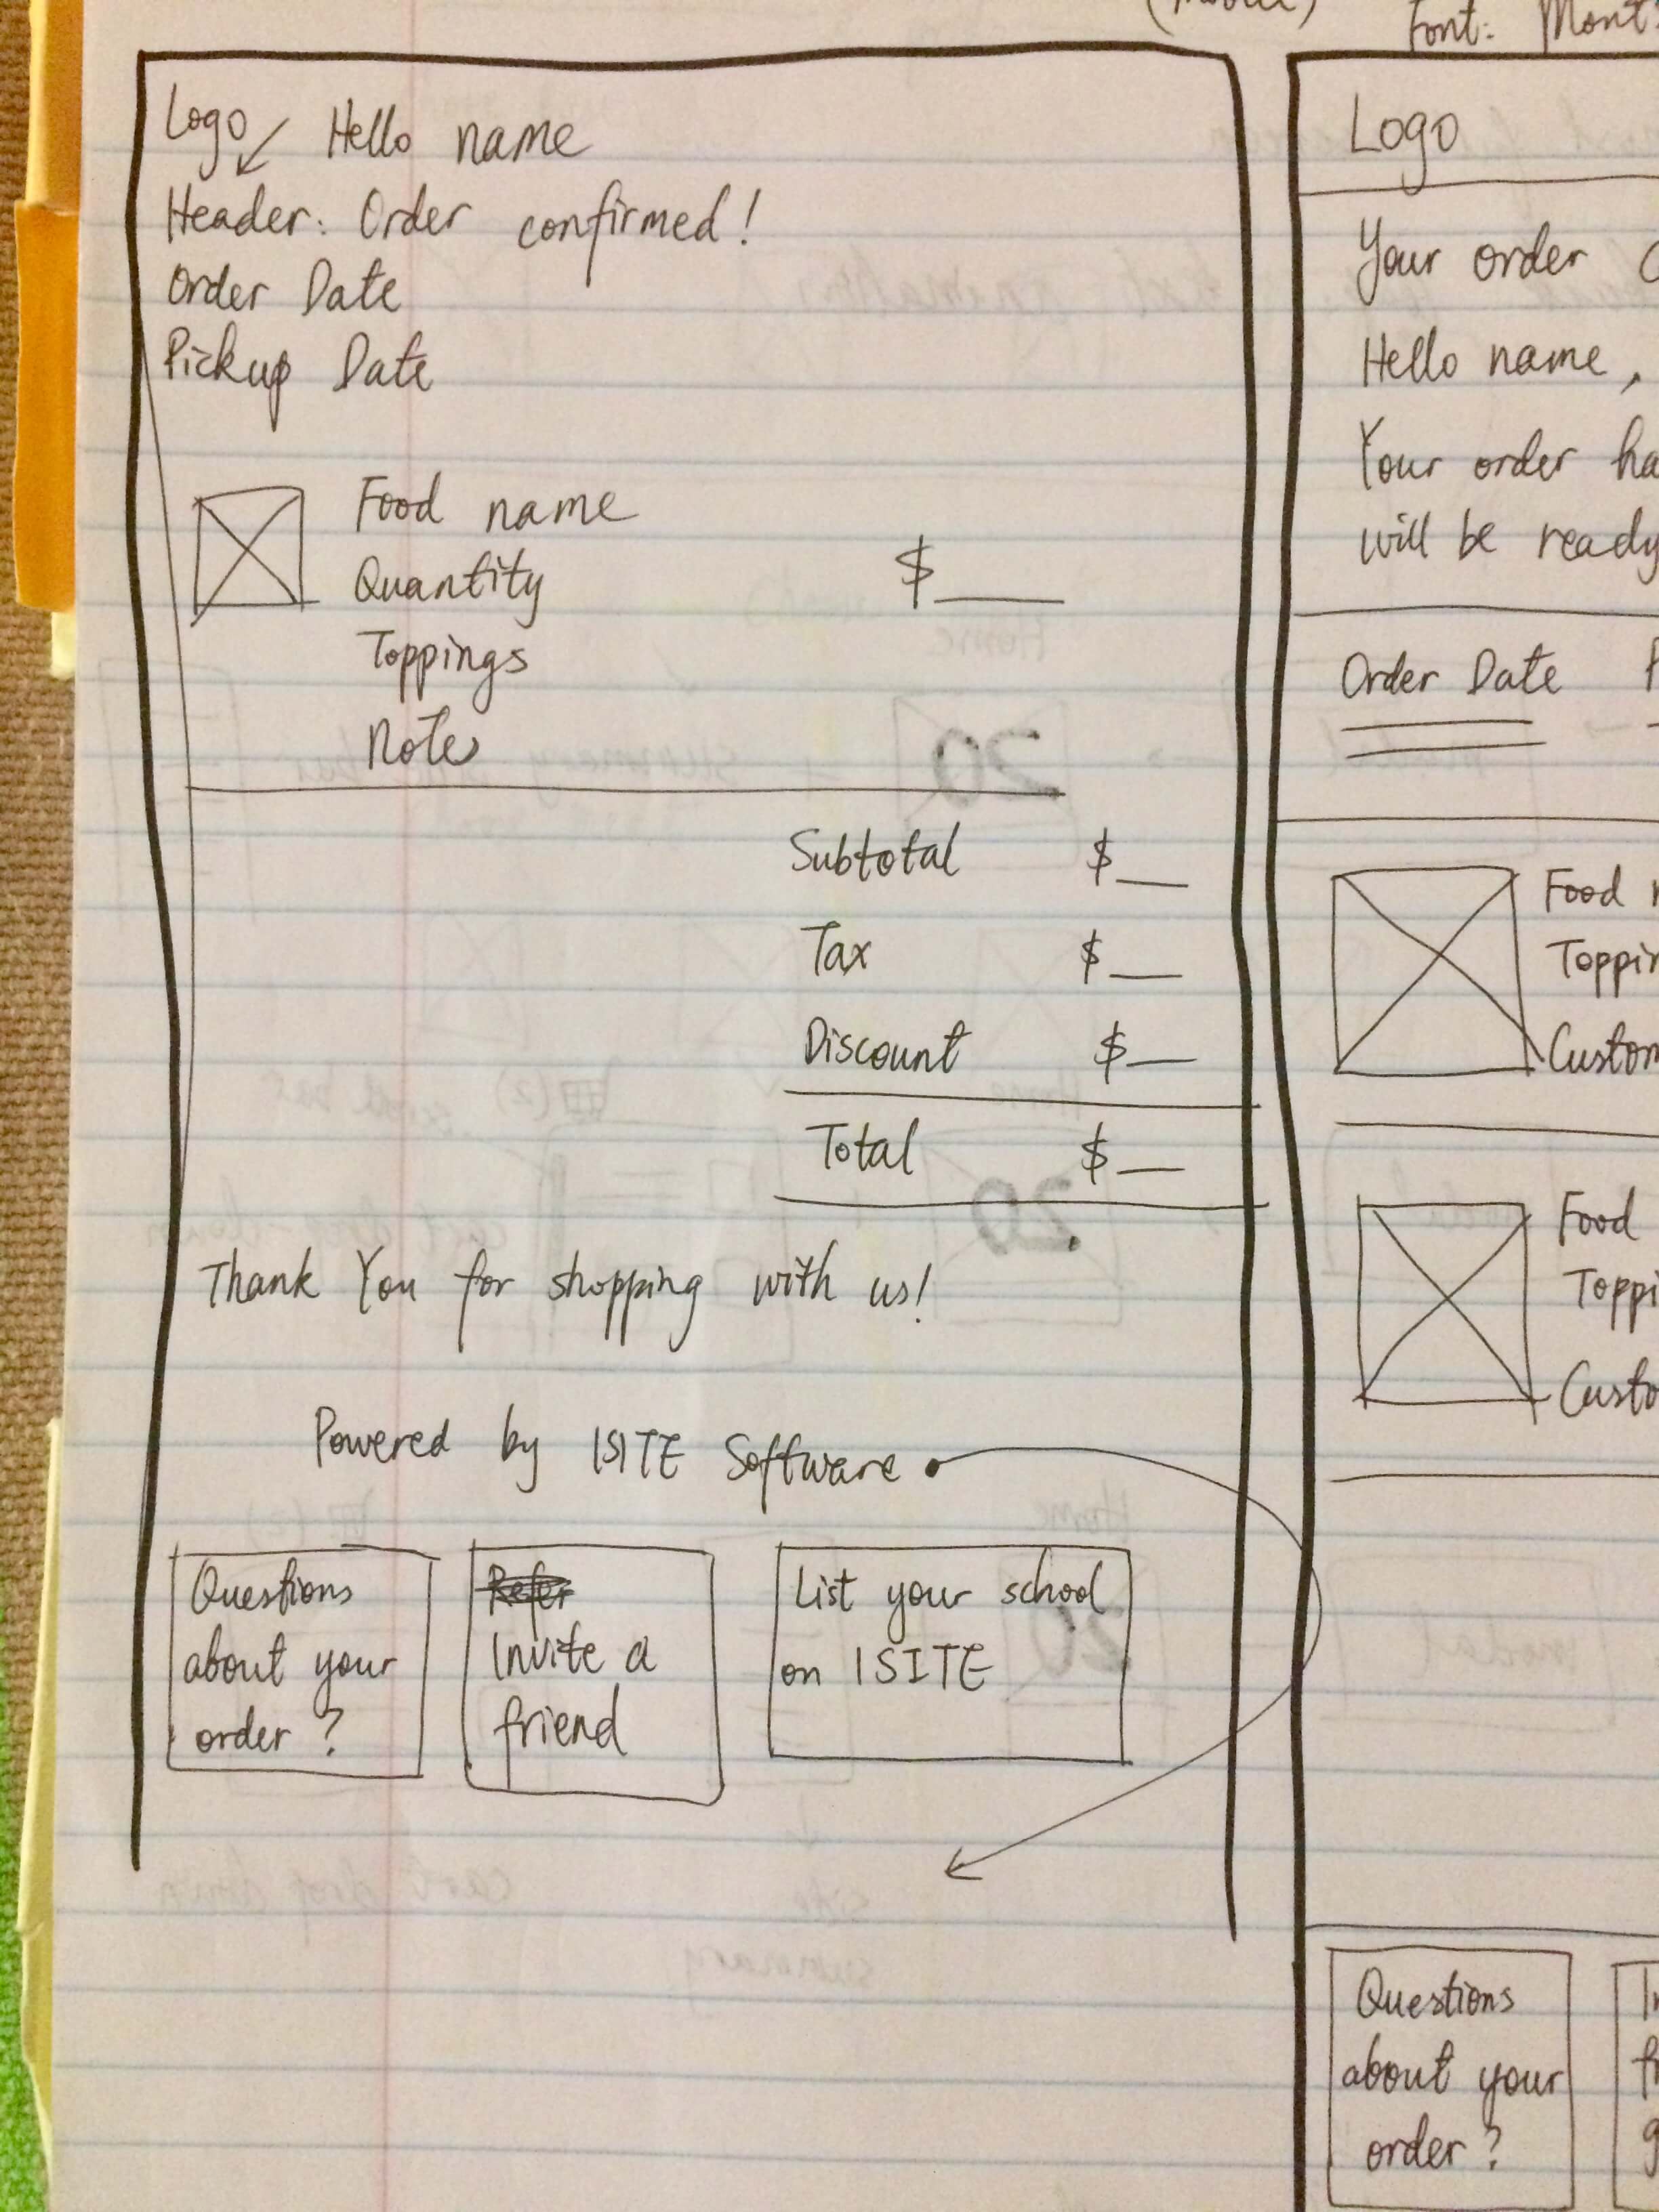 Font:
Logo
Hello name
Header: Order confirmed!
Order Date
Pickup Date
Food name
Quantity
$
Toppings
Note
Subtotal $
Tax $
Discount $
Total $
Thank You for shopping with us!
Powered by ISITE Software
Questions
about your
order?
Invite a
friend
List your school
on ISITE
Logo
Your order
Hello name,
Your order
will be ready
Order Date
Food
Custom
Food
Questions
about your
order?